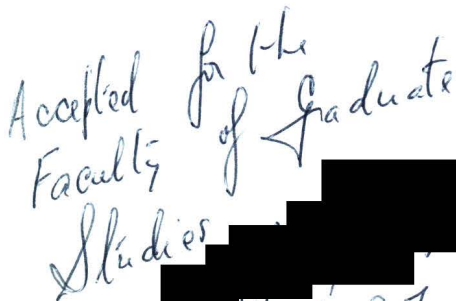 Accepted for the
Faculty of Graduate
Studies